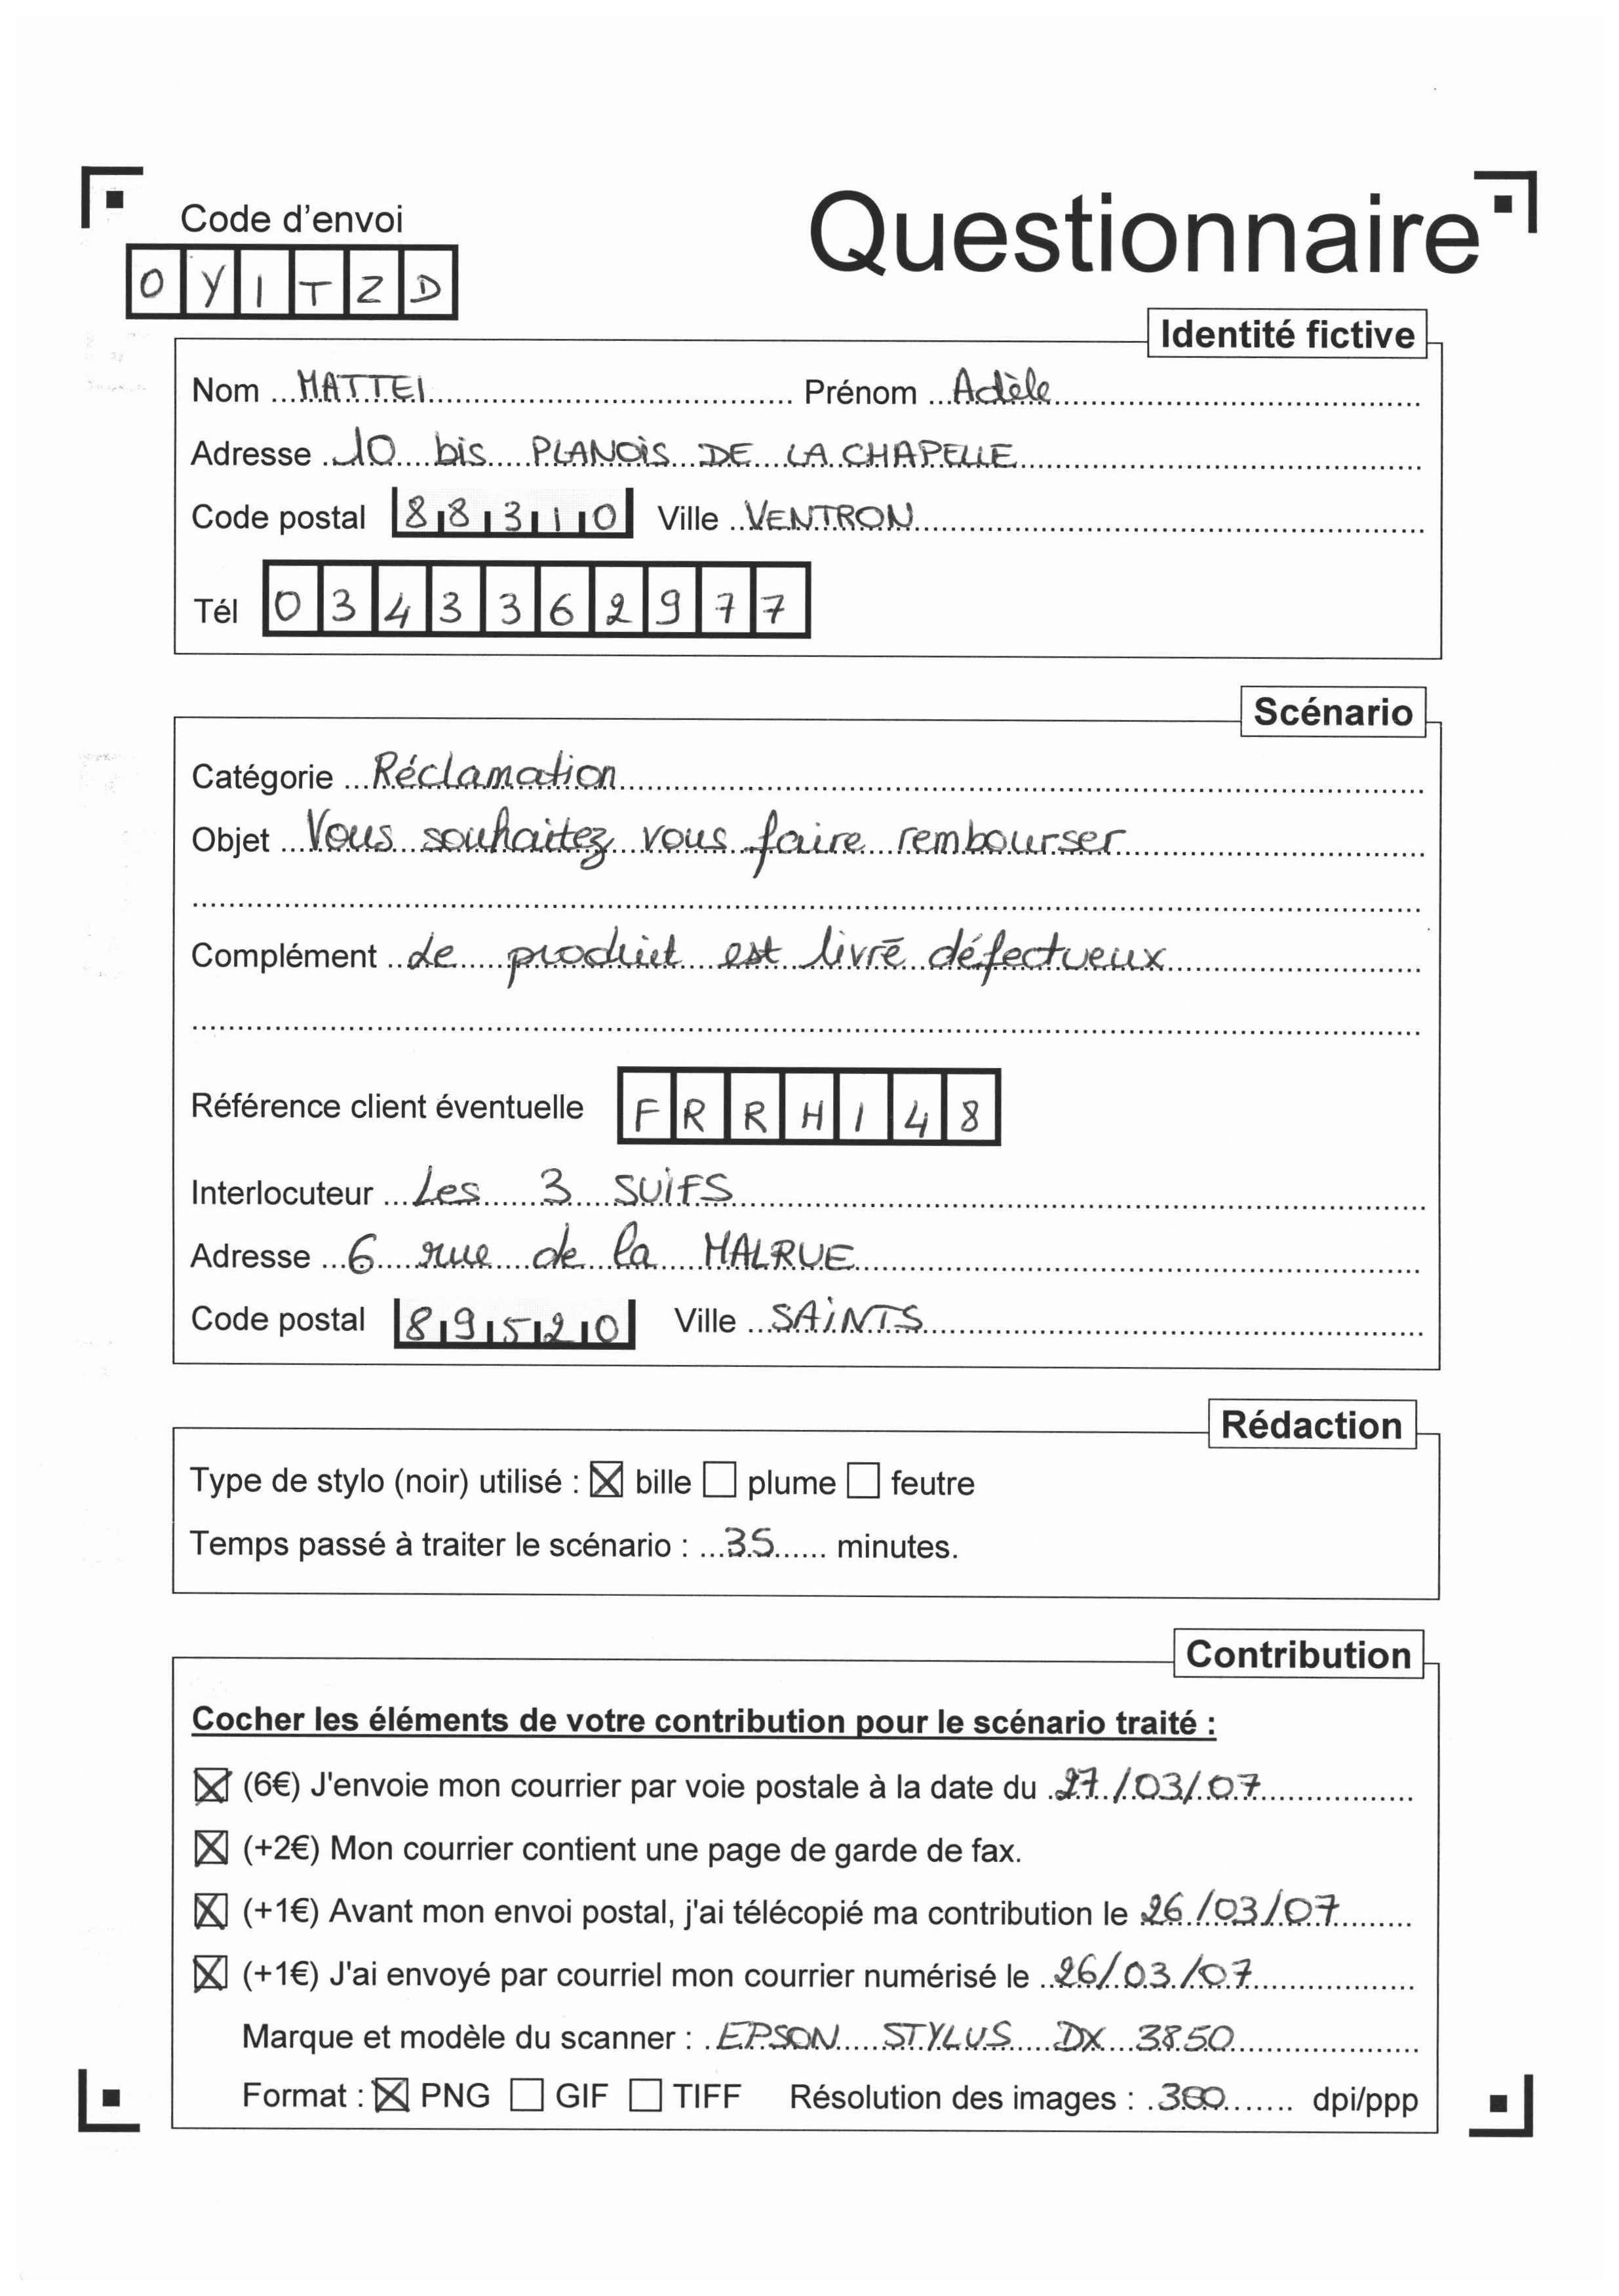 Code d'envoi
Questionnaire
O Y I T Z D
Identité fictive
Nom MATTEI Prénom Adèle
Adresse 10 bis PLANOIS DE LA CHAPELLE
Code postal 88310 Ville VENTRON
Tél 0343362977
Scénario
Catégorie Réclamation
Objet Vous souhaitez vous faire rembourser
Complément Le produit est livré défectueux
Référence client éventuelle F R R H 1 4 8
Interlocuteur Les 3 SUIFS
Adresse 6 rue de la MALRUE
Code postal 89520 Ville SAINTS
Rédaction
Type de stylo (noir) utilisé : ☒ bille ☐ plume ☐ feutre
Temps passé à traiter le scénario : 35 minutes.
Contribution
Cocher les éléments de votre contribution pour le scénario traité :
☒ (6€) J'envoie mon courrier par voie postale à la date du 27/03/07
☒ (+2€) Mon courrier contient une page de garde de fax.
☒ (+1€) Avant mon envoi postal, j'ai télécopié ma contribution le 26/03/07
☒ (+1€) J'ai envoyé par courriel mon courrier numérisé le 26/03/07
Marque et modèle du scanner : EPSON STYLUS DX 3850
Format : ☒ PNG ☐ GIF ☐ TIFF Résolution des images : 300 dpi/ppp